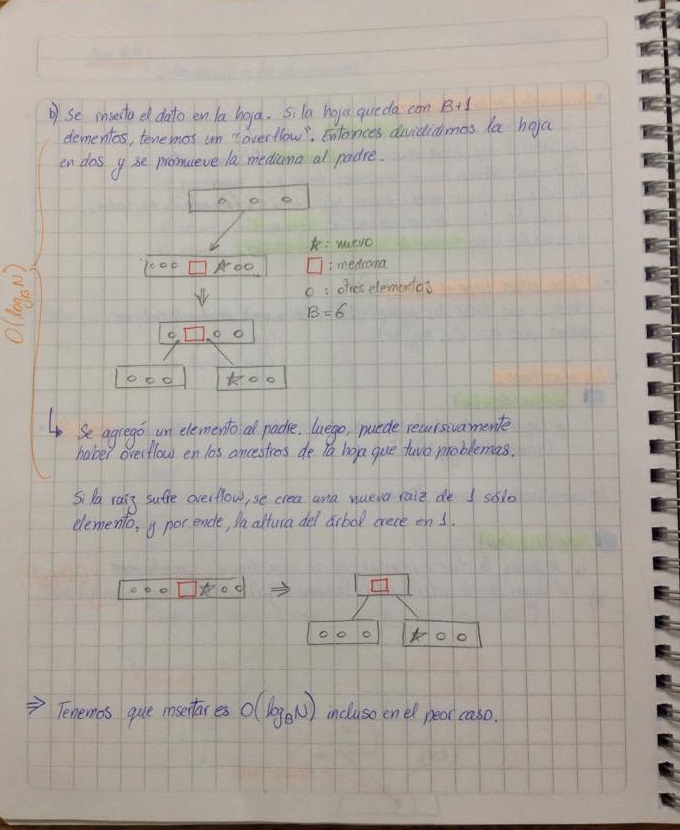 b) Se inserta el dato en la hoja. Si la hoja queda con B+1
elementos, tenemos un "overflow". Entonces dividimos la hoja
en dos y se promueve la mediana al padre.
★: nuevo
□: mediana
o: otros elementos
B=6
O(log_B N)
↳ Se agregó un elemento al padre. Luego, puede recursivamente
haber overflow en los ancestros de la hoja que tuvo problemas.
Si la raíz sufre overflow, se crea una nueva raíz de 1 sólo
elemento, y por ende, la altura del árbol crece en 1.
⇒ Tenemos que insertar es O(log_B N) incluso en el peor caso.